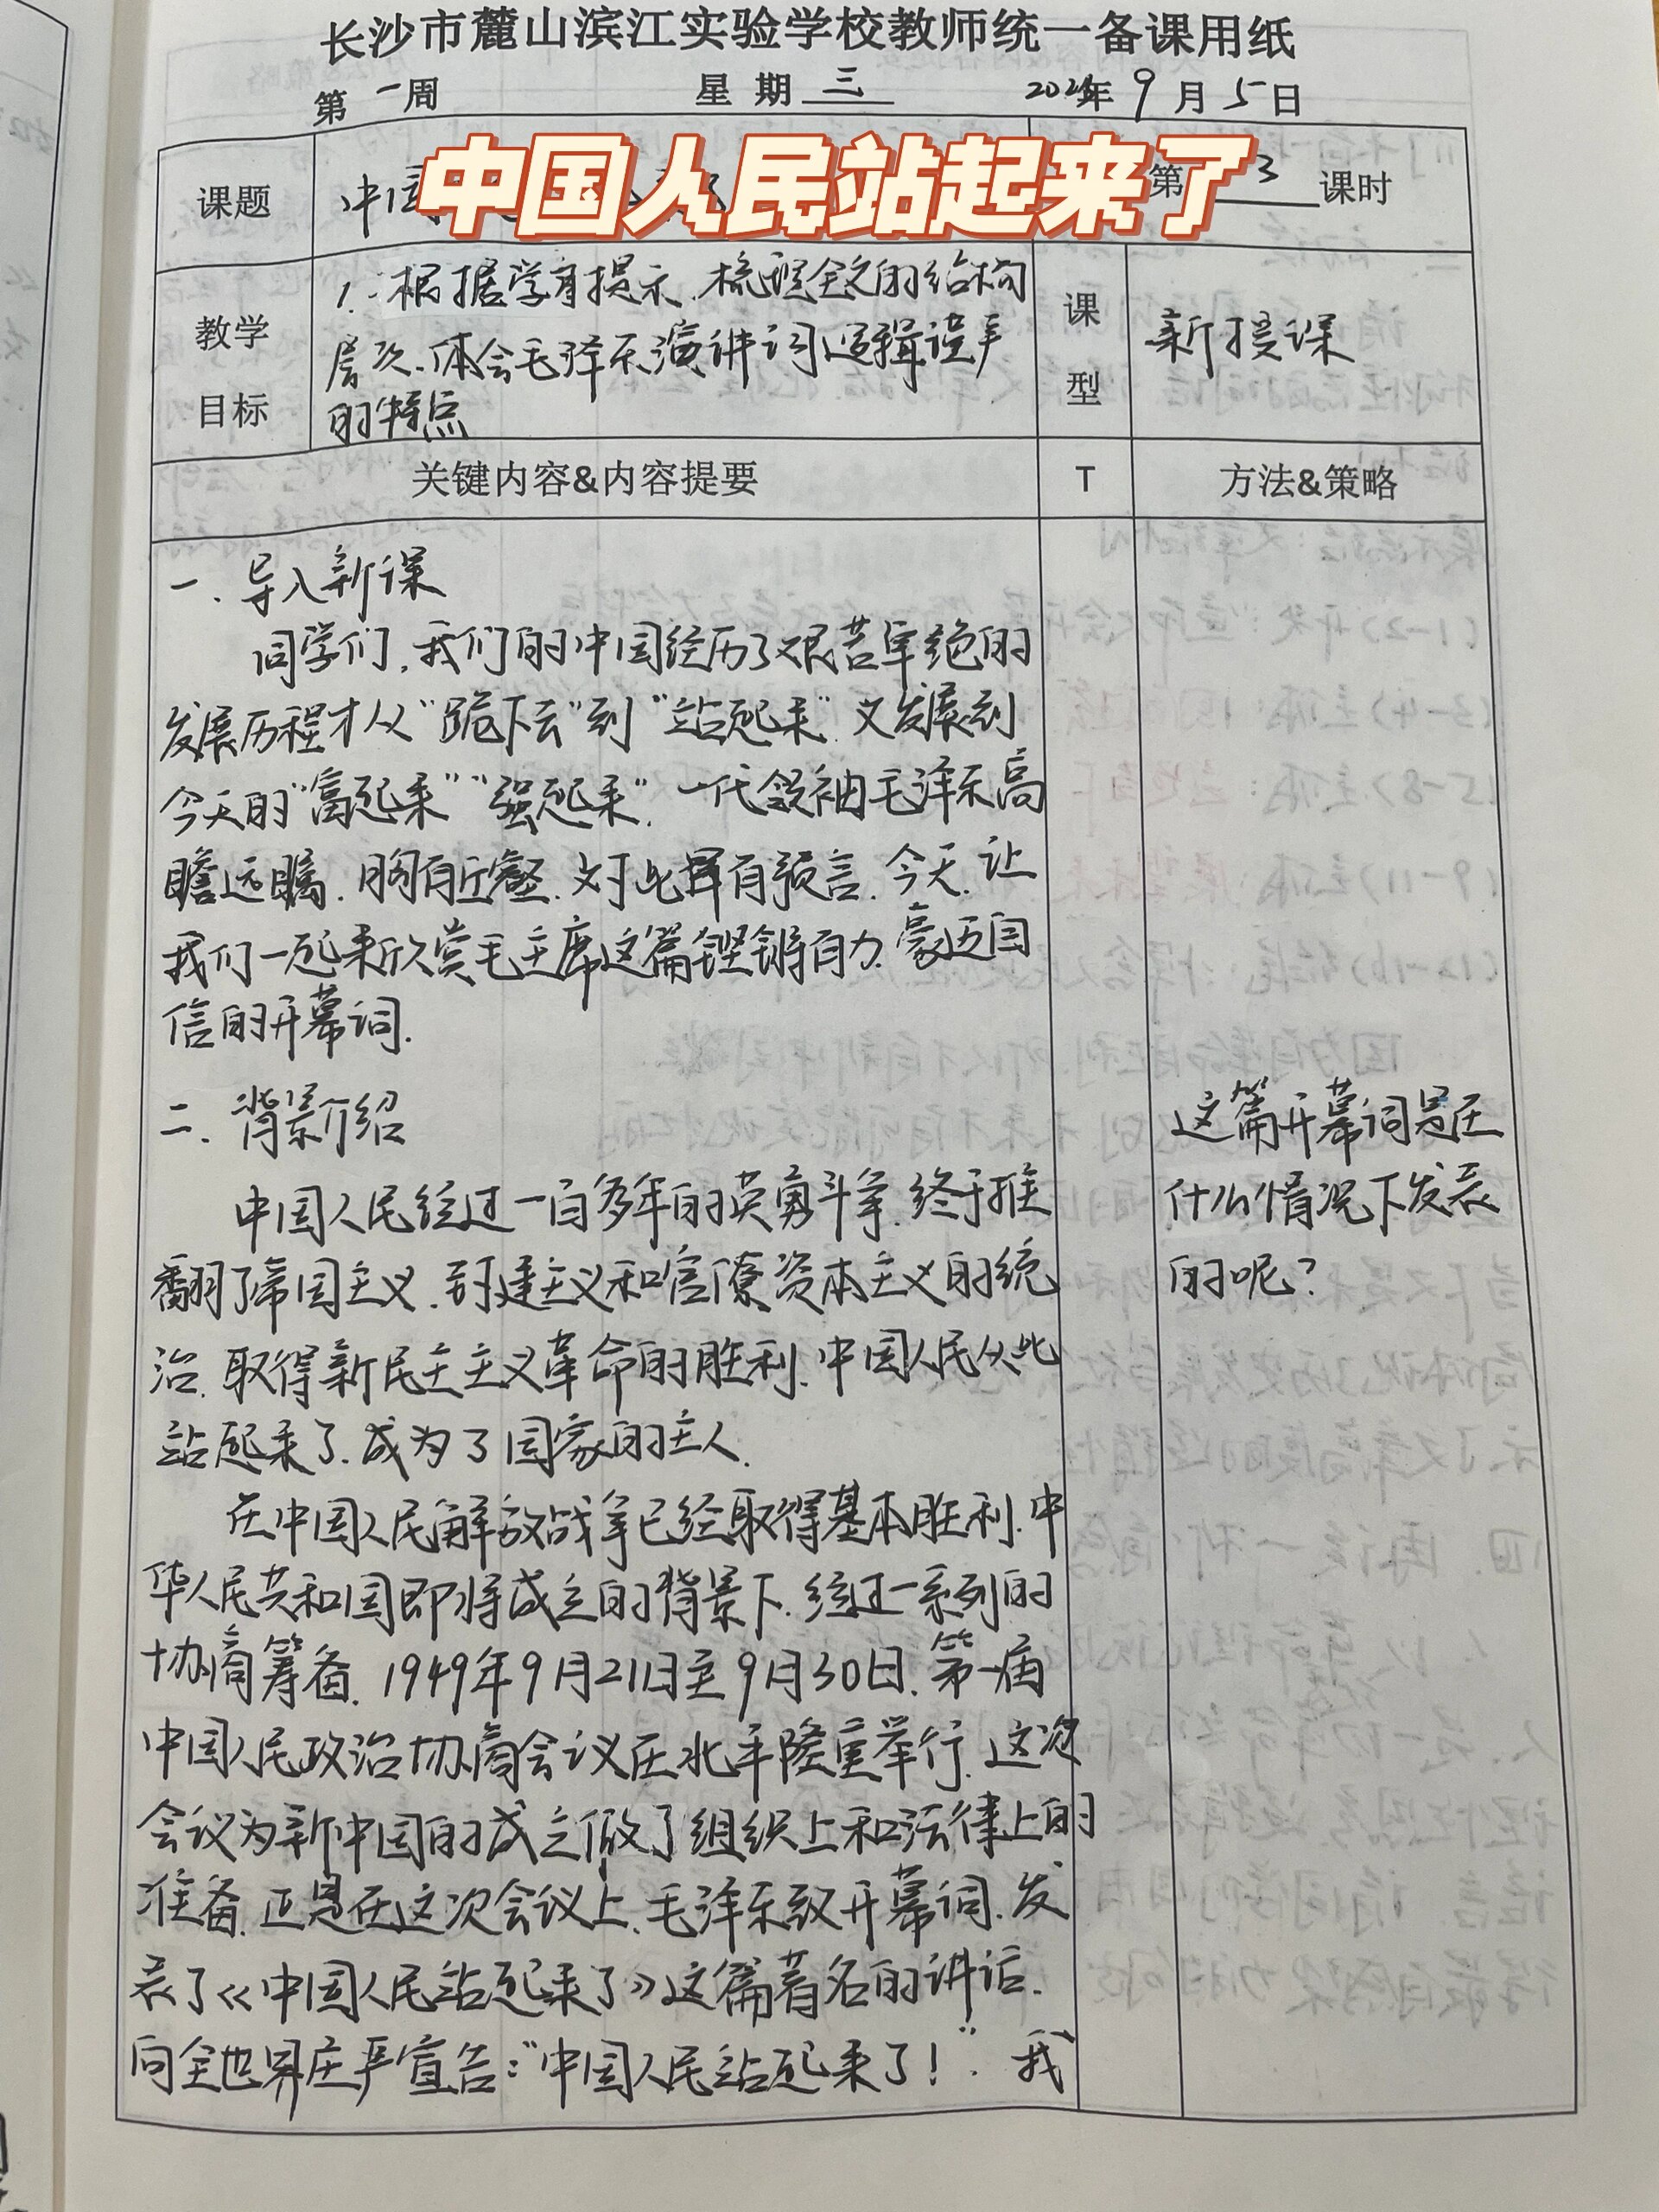 长沙市麓山滨江实验学校教师统一备课用纸
第一周 星期三 年9月5日
中国人民站起来了
课题 中国 第3课时
教学目标
1. 根据学习提示,梳理全文的结构
层次,体会毛泽东演讲词逻辑谨严
的特点
课型 新授课
关键内容&内容提要 T 方法&策略
一、导入新课
同学们,我们的中国经历了艰苦卓绝的
发展历程才从“跪下去”到“站起来”又发展到
今天的“富起来”“强起来”,一代领袖毛泽东高
瞻远瞩,胸有丘壑,对此早有预言,今天,让
我们一起来欣赏毛主席这篇铿锵有力,豪迈自
信的开幕词.
二、背景介绍
中国人民经过一百多年的英勇斗争,终于推
翻了帝国主义、封建主义和官僚资本主义的统
治,取得新民主主义革命的胜利,中国人民从此
站起来了,成为了国家的主人.
在中国人民解放战争已经取得基本胜利,中
华人民共和国即将成立的背景下,经过一系列的
协商筹备,1949年9月21日至9月30日,第一届
中国人民政治协商会议在北平隆重举行,这次
会议为新中国的成立做了组织上和法律上的
准备,正是在这次会议上,毛泽东致开幕词,发
表了《中国人民站起来了》这篇著名的讲话,
向全世界庄严宣告:“中国人民站起来了!”.我
这篇开幕词是在
什么情况下发表
的呢?